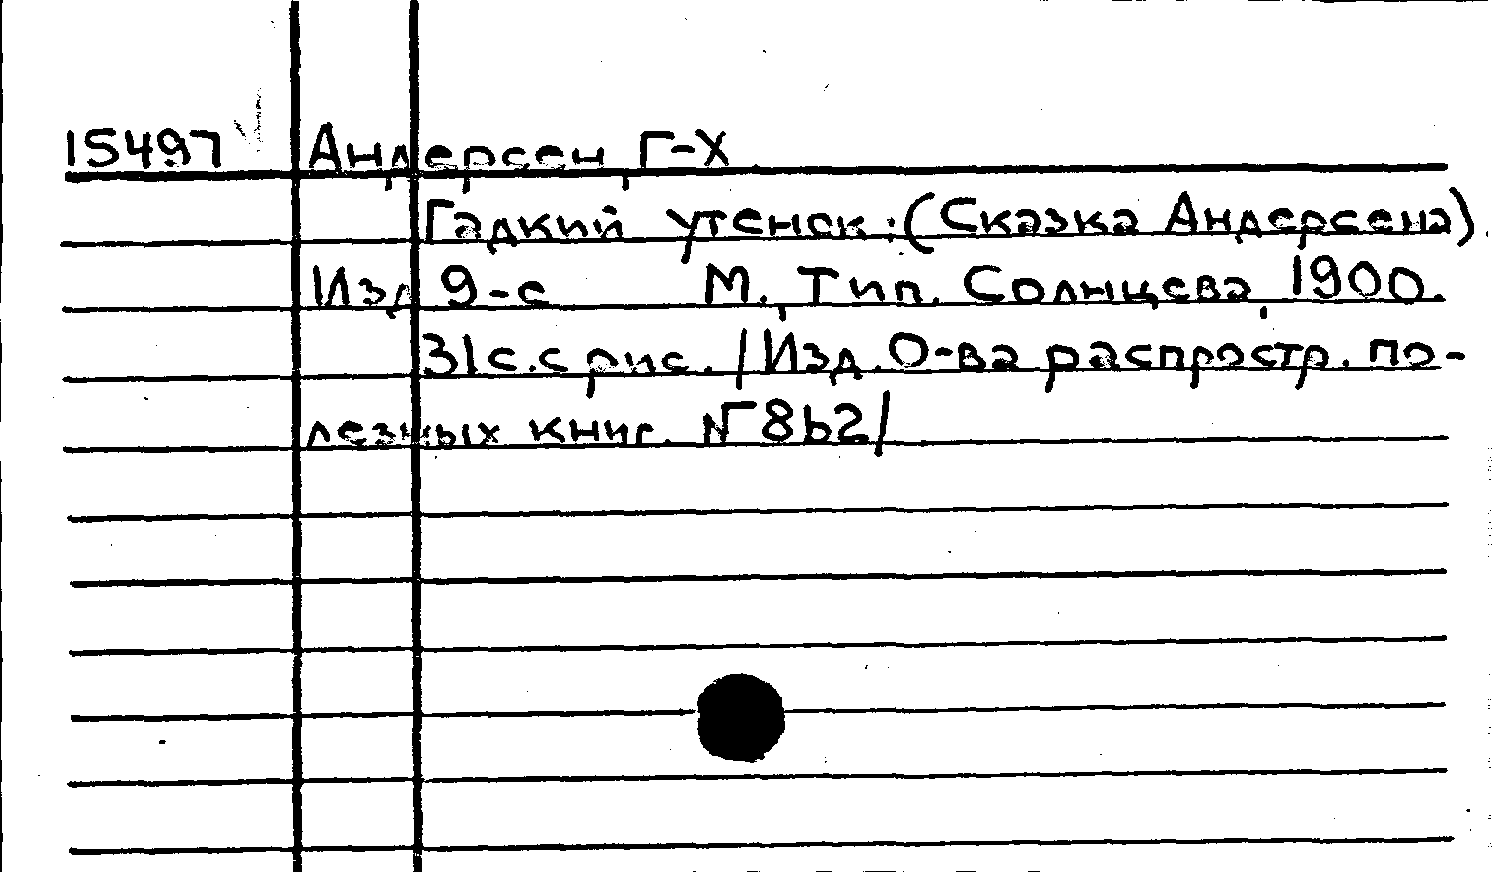 15497 Андерсен, Г-Х.
Гадкий утенок: (Сказка Андерсена).
Изд 9-е М., Тип. Солнцева, 1900.
31с. с рис. /Изд. О-ва распростр. по-
лезных книг. № 862/